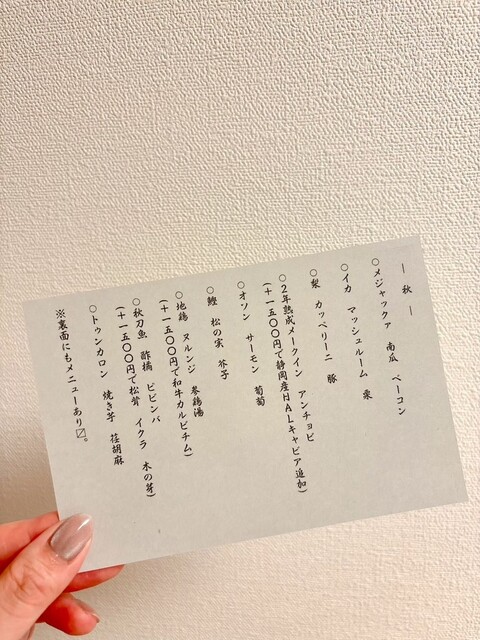 ― 秋 ―
○メジャックァ 南瓜 ベーコン
○イカ マッシュルーム 栗
○梨 カッペリーニ 豚
○2年熟成メークイン アンチョビ
(+一五〇〇円で静岡産HALキャビア追加)
○オソン サーモン 葡萄
○鰹 松の実 芥子
○地鶏 ヌルンジ 参鶏湯
(+一五〇〇円で和牛カルビチム)
○秋刀魚 酢橘 ビビンバ
(+一五〇〇円で松茸 イクラ 木の芽)
○トゥンカロン 焼き芋 荏胡麻
※裏面にもメニューあり〼。